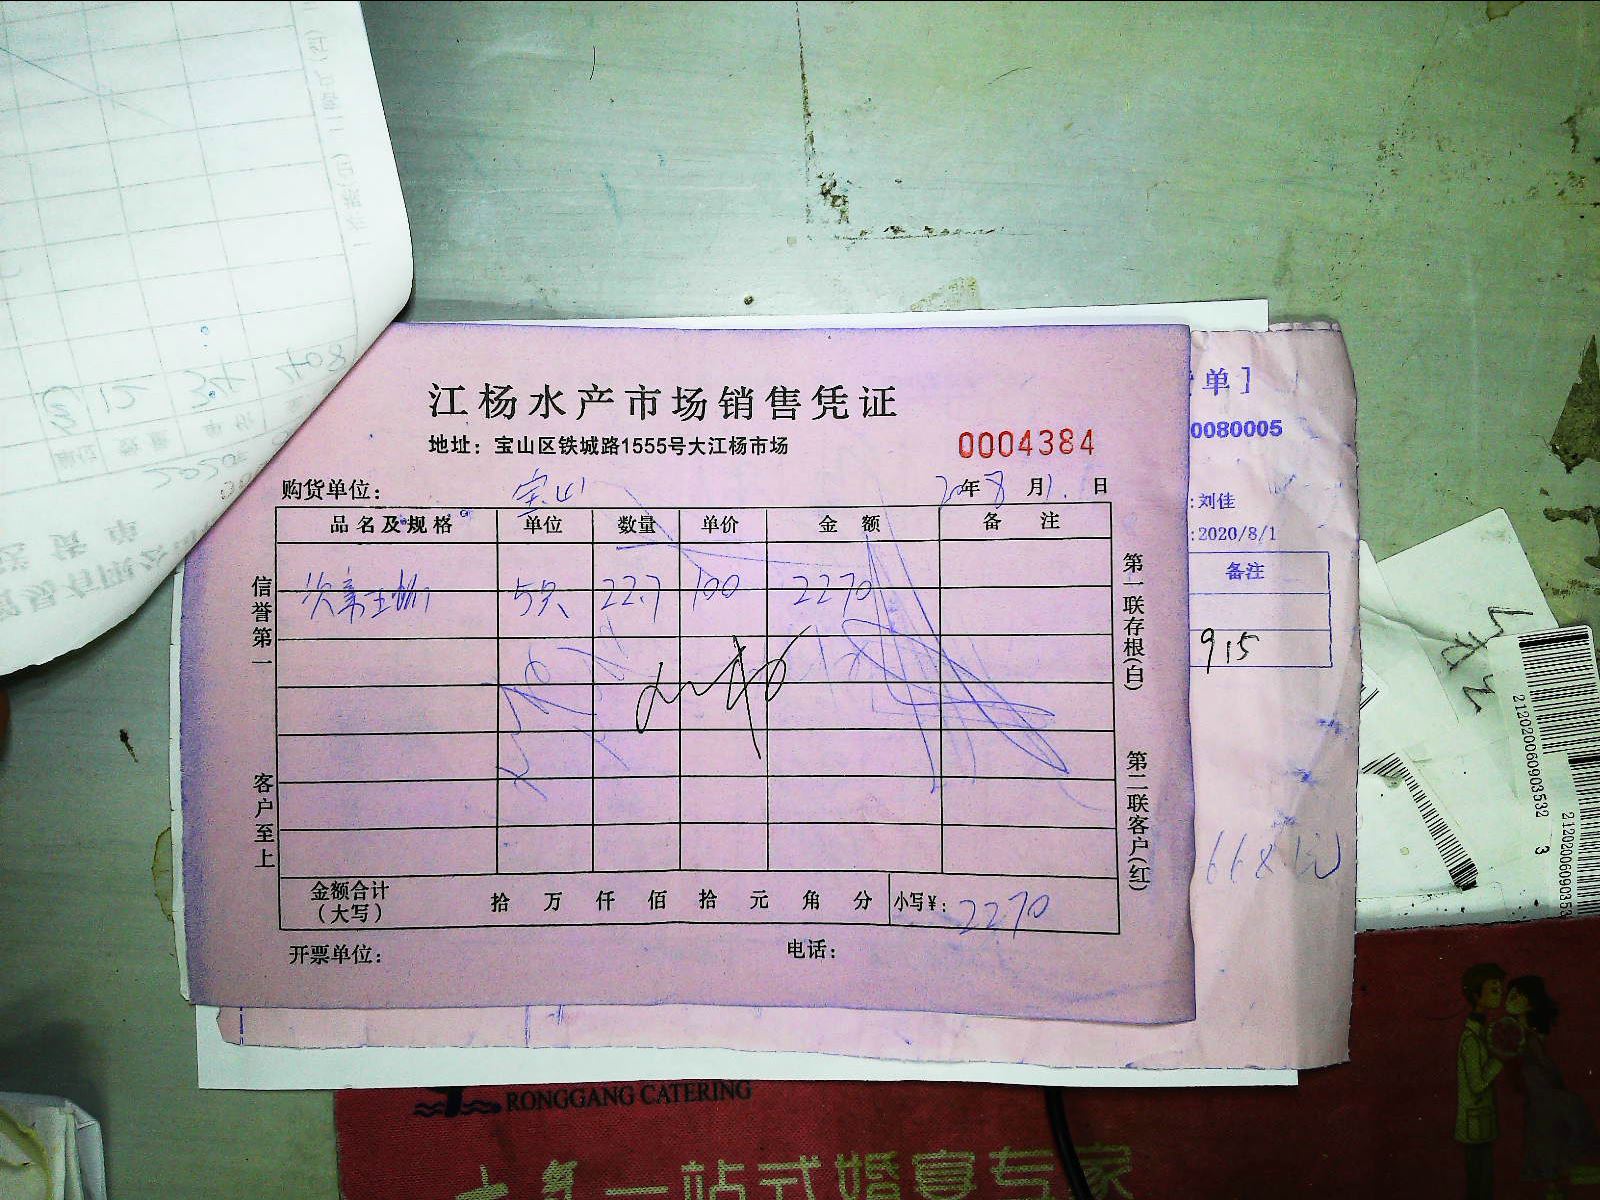 江杨水产市场销售凭证
地址：宝山区铁城路1555号大江杨市场
0004384
购货单位： 宝山 20年8月1日
品名及规格 单位 数量 单价 金额 备注
5只 22.7 100 2270
信誉第一
客户至上
第一联存根(白)
第二联客户(红)
金额合计（大写） 拾 万 仟 佰 拾 元 角 分 小写¥： 2270
开票单位： 电话：
单]
0080005
:刘佳
:2020/8/1
备注
915
668元
212020060903532 3
21202006090353
RONGGANG CATERING
一站式婚宴专家